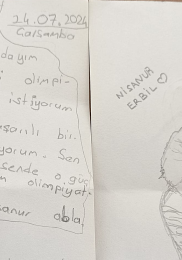 24.07.2024
Çarşamba
dayım
olimpi-
istiyorum
bir
yorum. Sen
sende o güç
olimpiyat-
abla
NİSANUR
ERBİL ♡